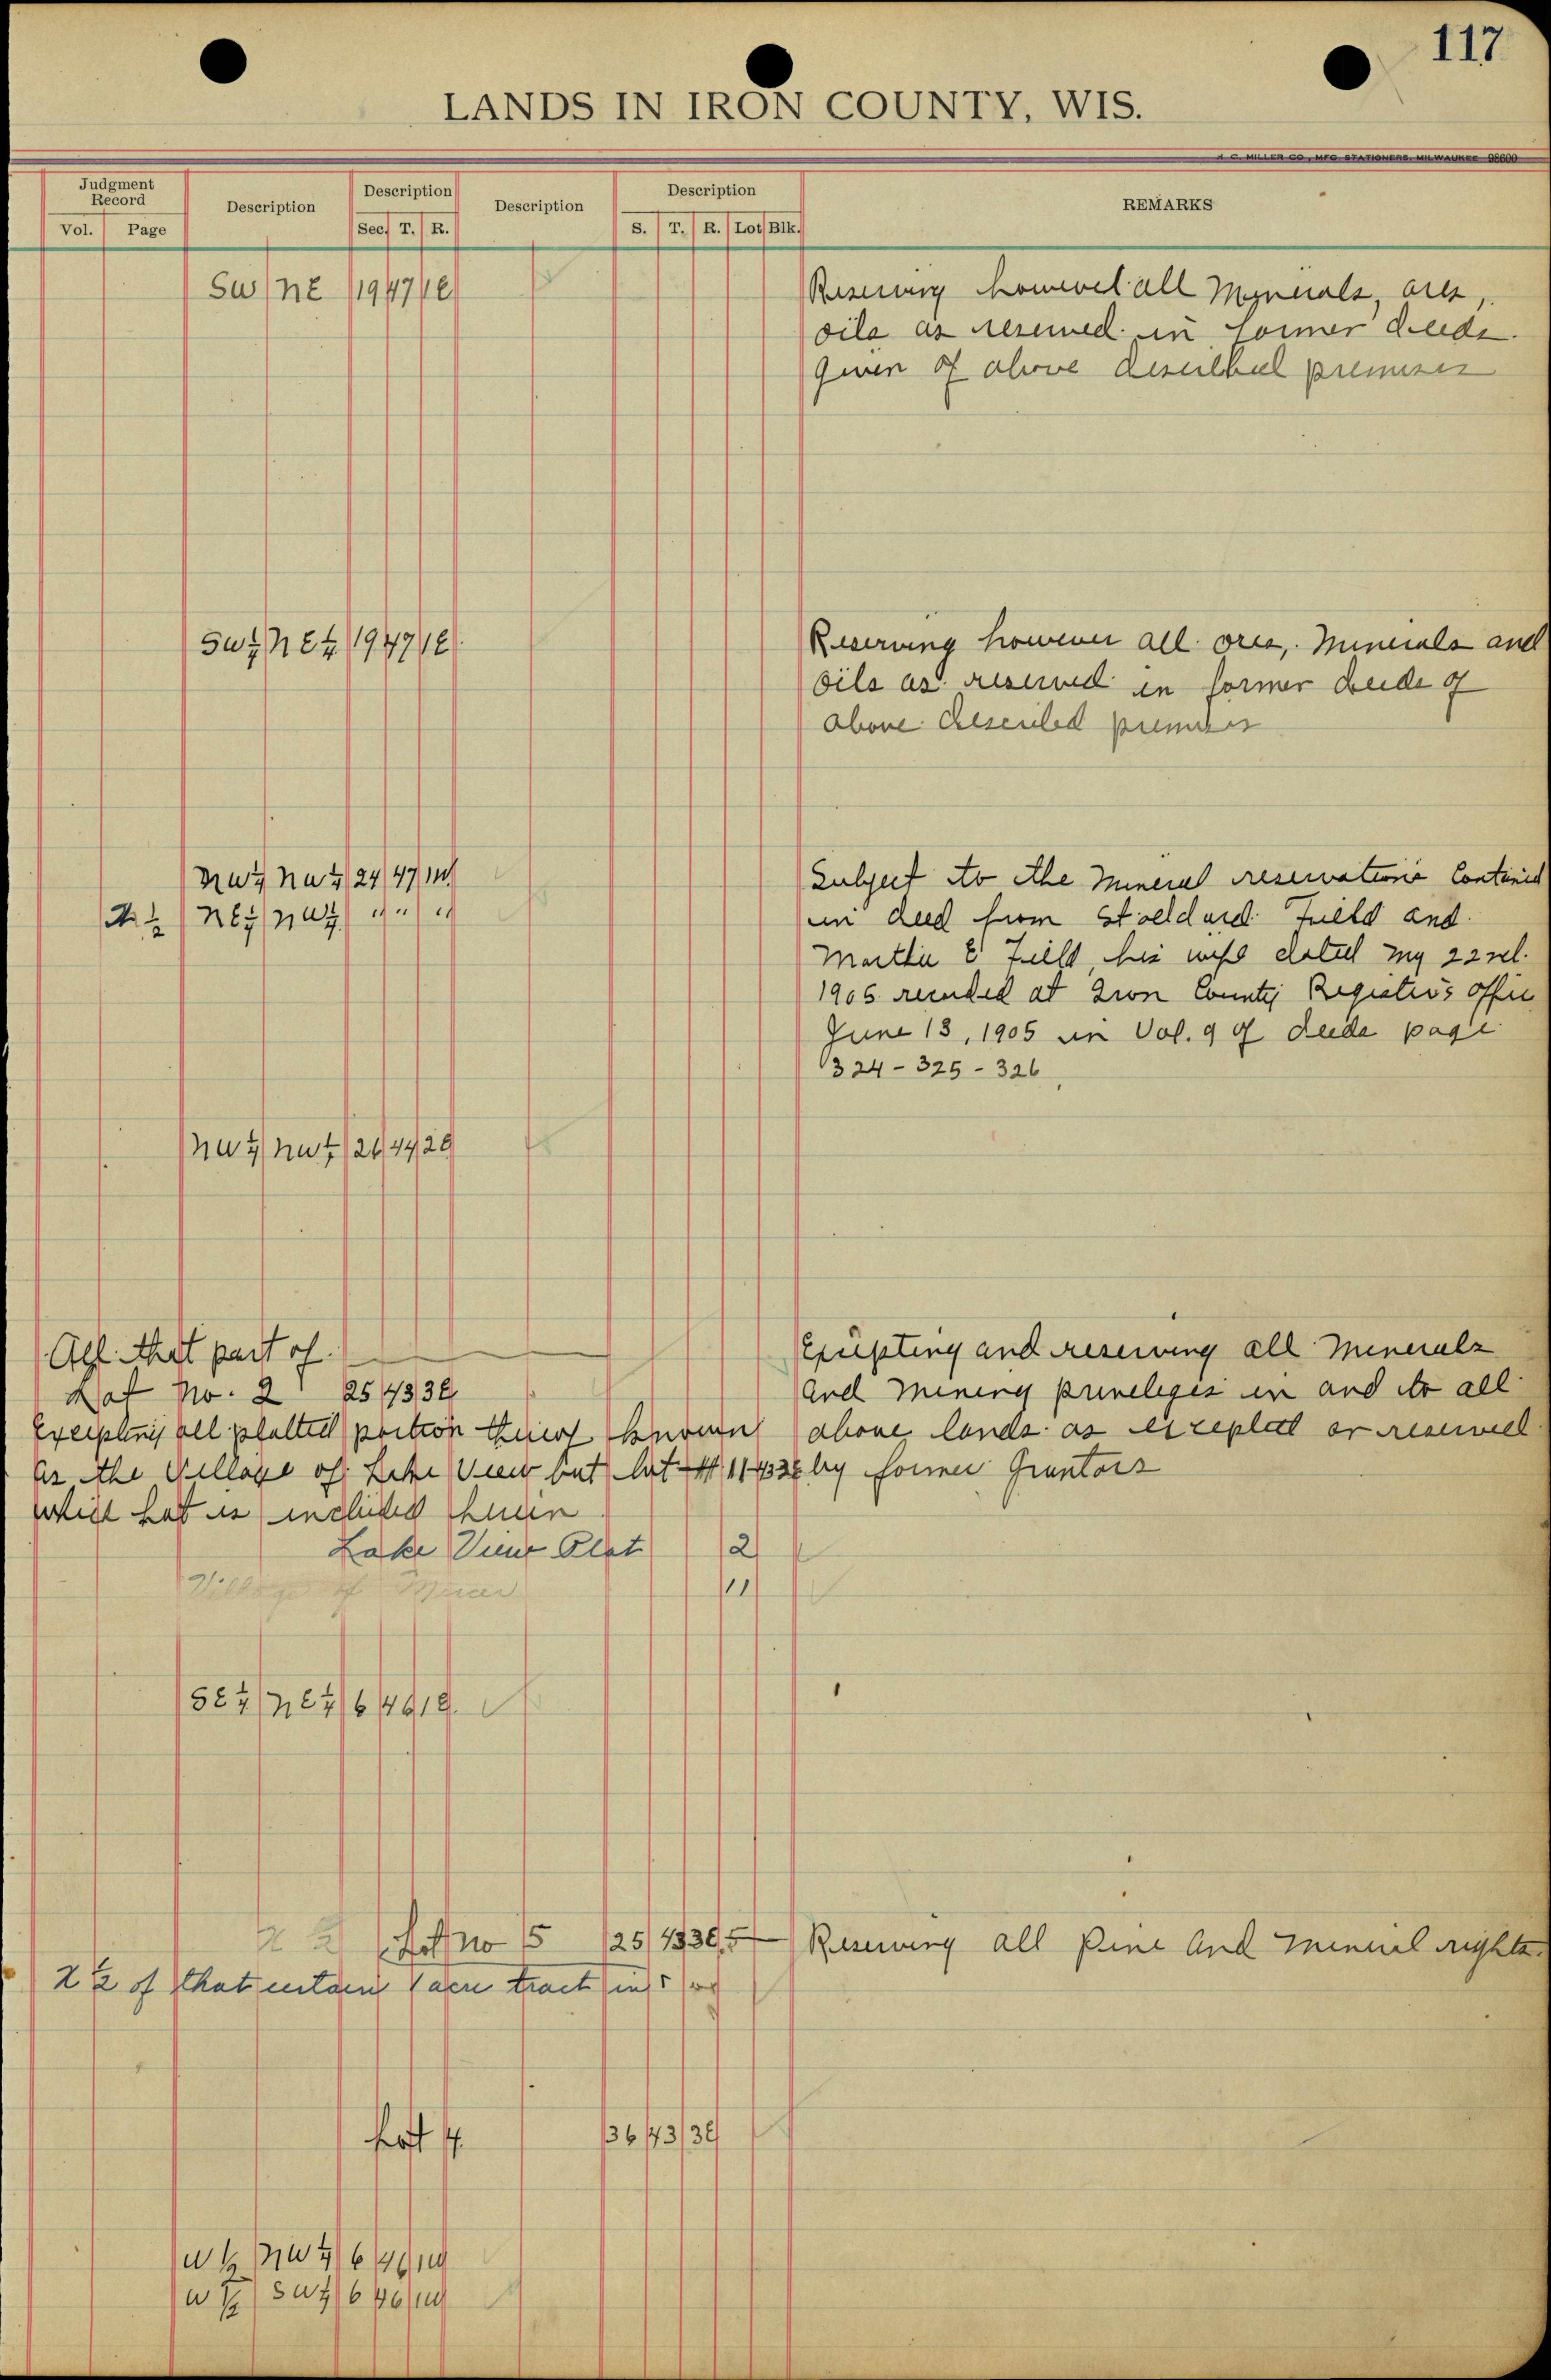 117
LANDS IN IRON COUNTY, WIS.
H. C. MILLER CO., MFG. STATIONERS, MILWAUKEE 98600
Judgment Record Description Description Description Description REMARKS
Vol. Page Sec. T. R. S. T. R. Lot Blk.
SW NE 19 47 1E Reserving however all Minerals, ores,
oils as reserved in former deeds
Given of above described premises
SW¼ NE¼ 19 47 1E Reserving however all ores, Minerals and
oils as reserved in former deeds of
above described premises
NW¼ NW¼ 24 47 1W Subject to the Mineral reservations Contained
N½ NE¼ NW¼ " " " in deed from Field and
Martha E Field, his wife dated My 22nd
1905 recorded at Iron County Register's office
June 13, 1905 in Vol. 9 of deeds page
324 - 325 - 326
NW¼ NW¼ 26 44 2E
All that part of Excepting and reserving all Minerals
Lot No. 2 25 43 3E and Mining privileges in and to all
Excepting all platted portion thereof known above lands as excepted or reserved
as the Village of Lake View but Lot 11 43 3E by former Grantors
which Lot is included herein
Lake View Plat 2
Village of Mercer 11
SE¼ NE¼ 6 46 1E
Lot No 5 25 43 3E 5 Reserving all Pine and Mineral rights
N½ of that certain 1 acre tract in
Lot 4 36 43 3E
W½ NW¼ 6 46 1W
W½ SW¼ 6 46 1W